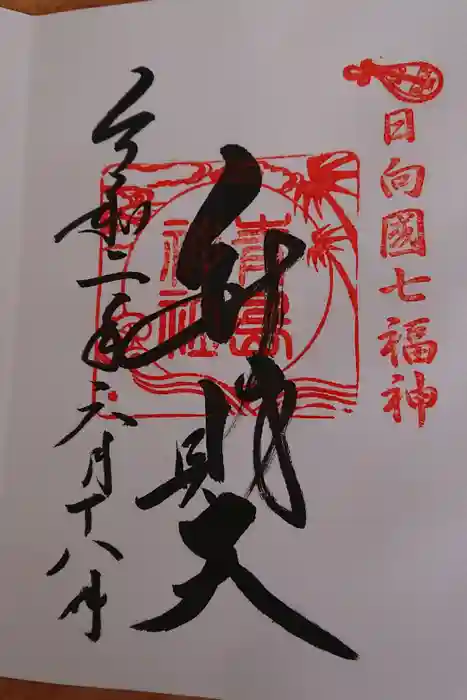 日向國七福神
青島神社
財天
令和二年六月十八日